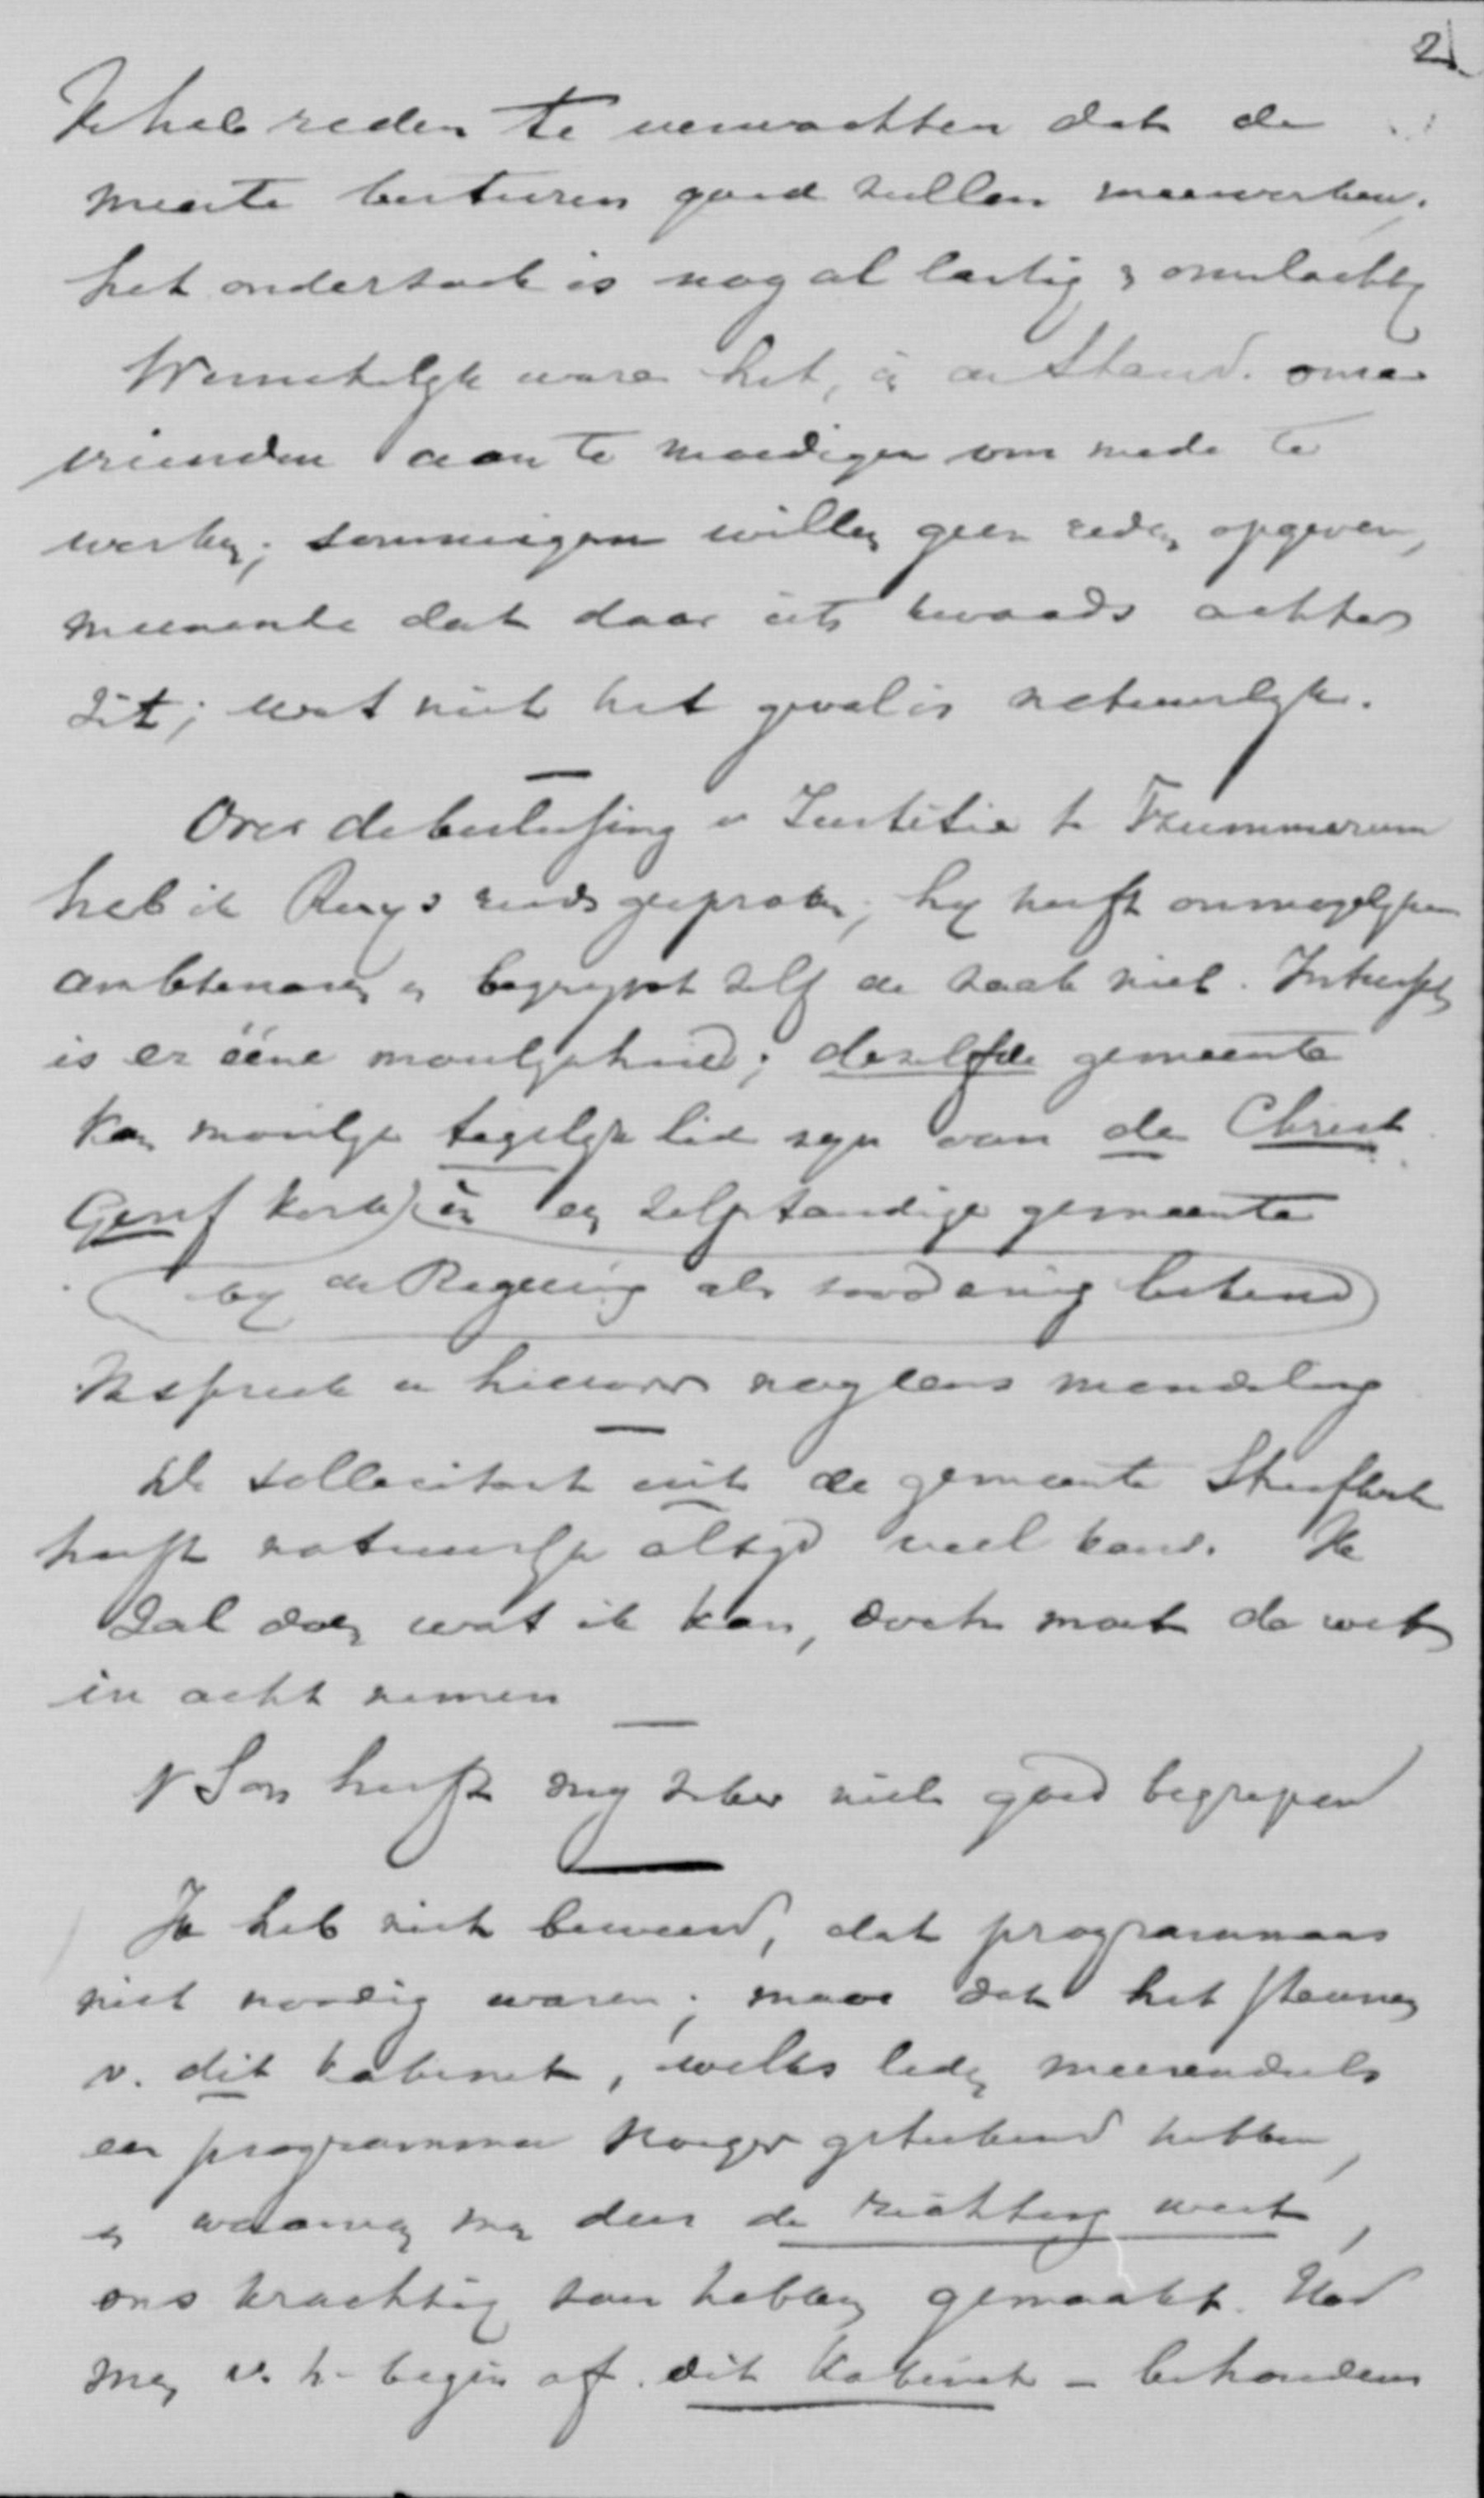 2
Ik heb reden te verwachten dat de
meeste besturen goed zullen meewerken.
het onderzoek is nog al lastig & omslachtig
Wenschelijk ware het, in de Stand. onze
vrienden aan te moedigen om mede te
werken; sommigen willen geen reden opgeven,
meenende dat daar iets kwaads achter
zit; wat niet het geval is natuurlijk.
Over de beslissing v Justitie te Tzummarum
heb ik Ruys reeds gesproken; hij heeft onmogelijke
ambtenaren en begrijpt zelf de zaak niet. Intusschen
is er ééne moeilijkheid; dezelfde gemeente
kan moeilijk tegelijk lid zijn van de Christ
Geref kerk én een zelfstandige gemeente
bij de Regeering als zoodanig bekend
Ik spreek u hierover nog eens mondeling
De sollicitant uit de gemeente
heeft natuurlijk altijd veel kans. Ik
zal doen wat ik kan, doch moet de wet
in acht nemen
heeft mij zeker niet goed begrepen
Ik heb niet beweerd, dat programmaas
niet noodig waren; maar dat het steunen
v. dit kabinet, welks leden meerendeels
een programma hooger geteekend hebben,
en waarvan men dus de richting weet,
ons krachtig zou hebben gemaakt. Had
men v. h. begin af dit Kabinet – behoudens